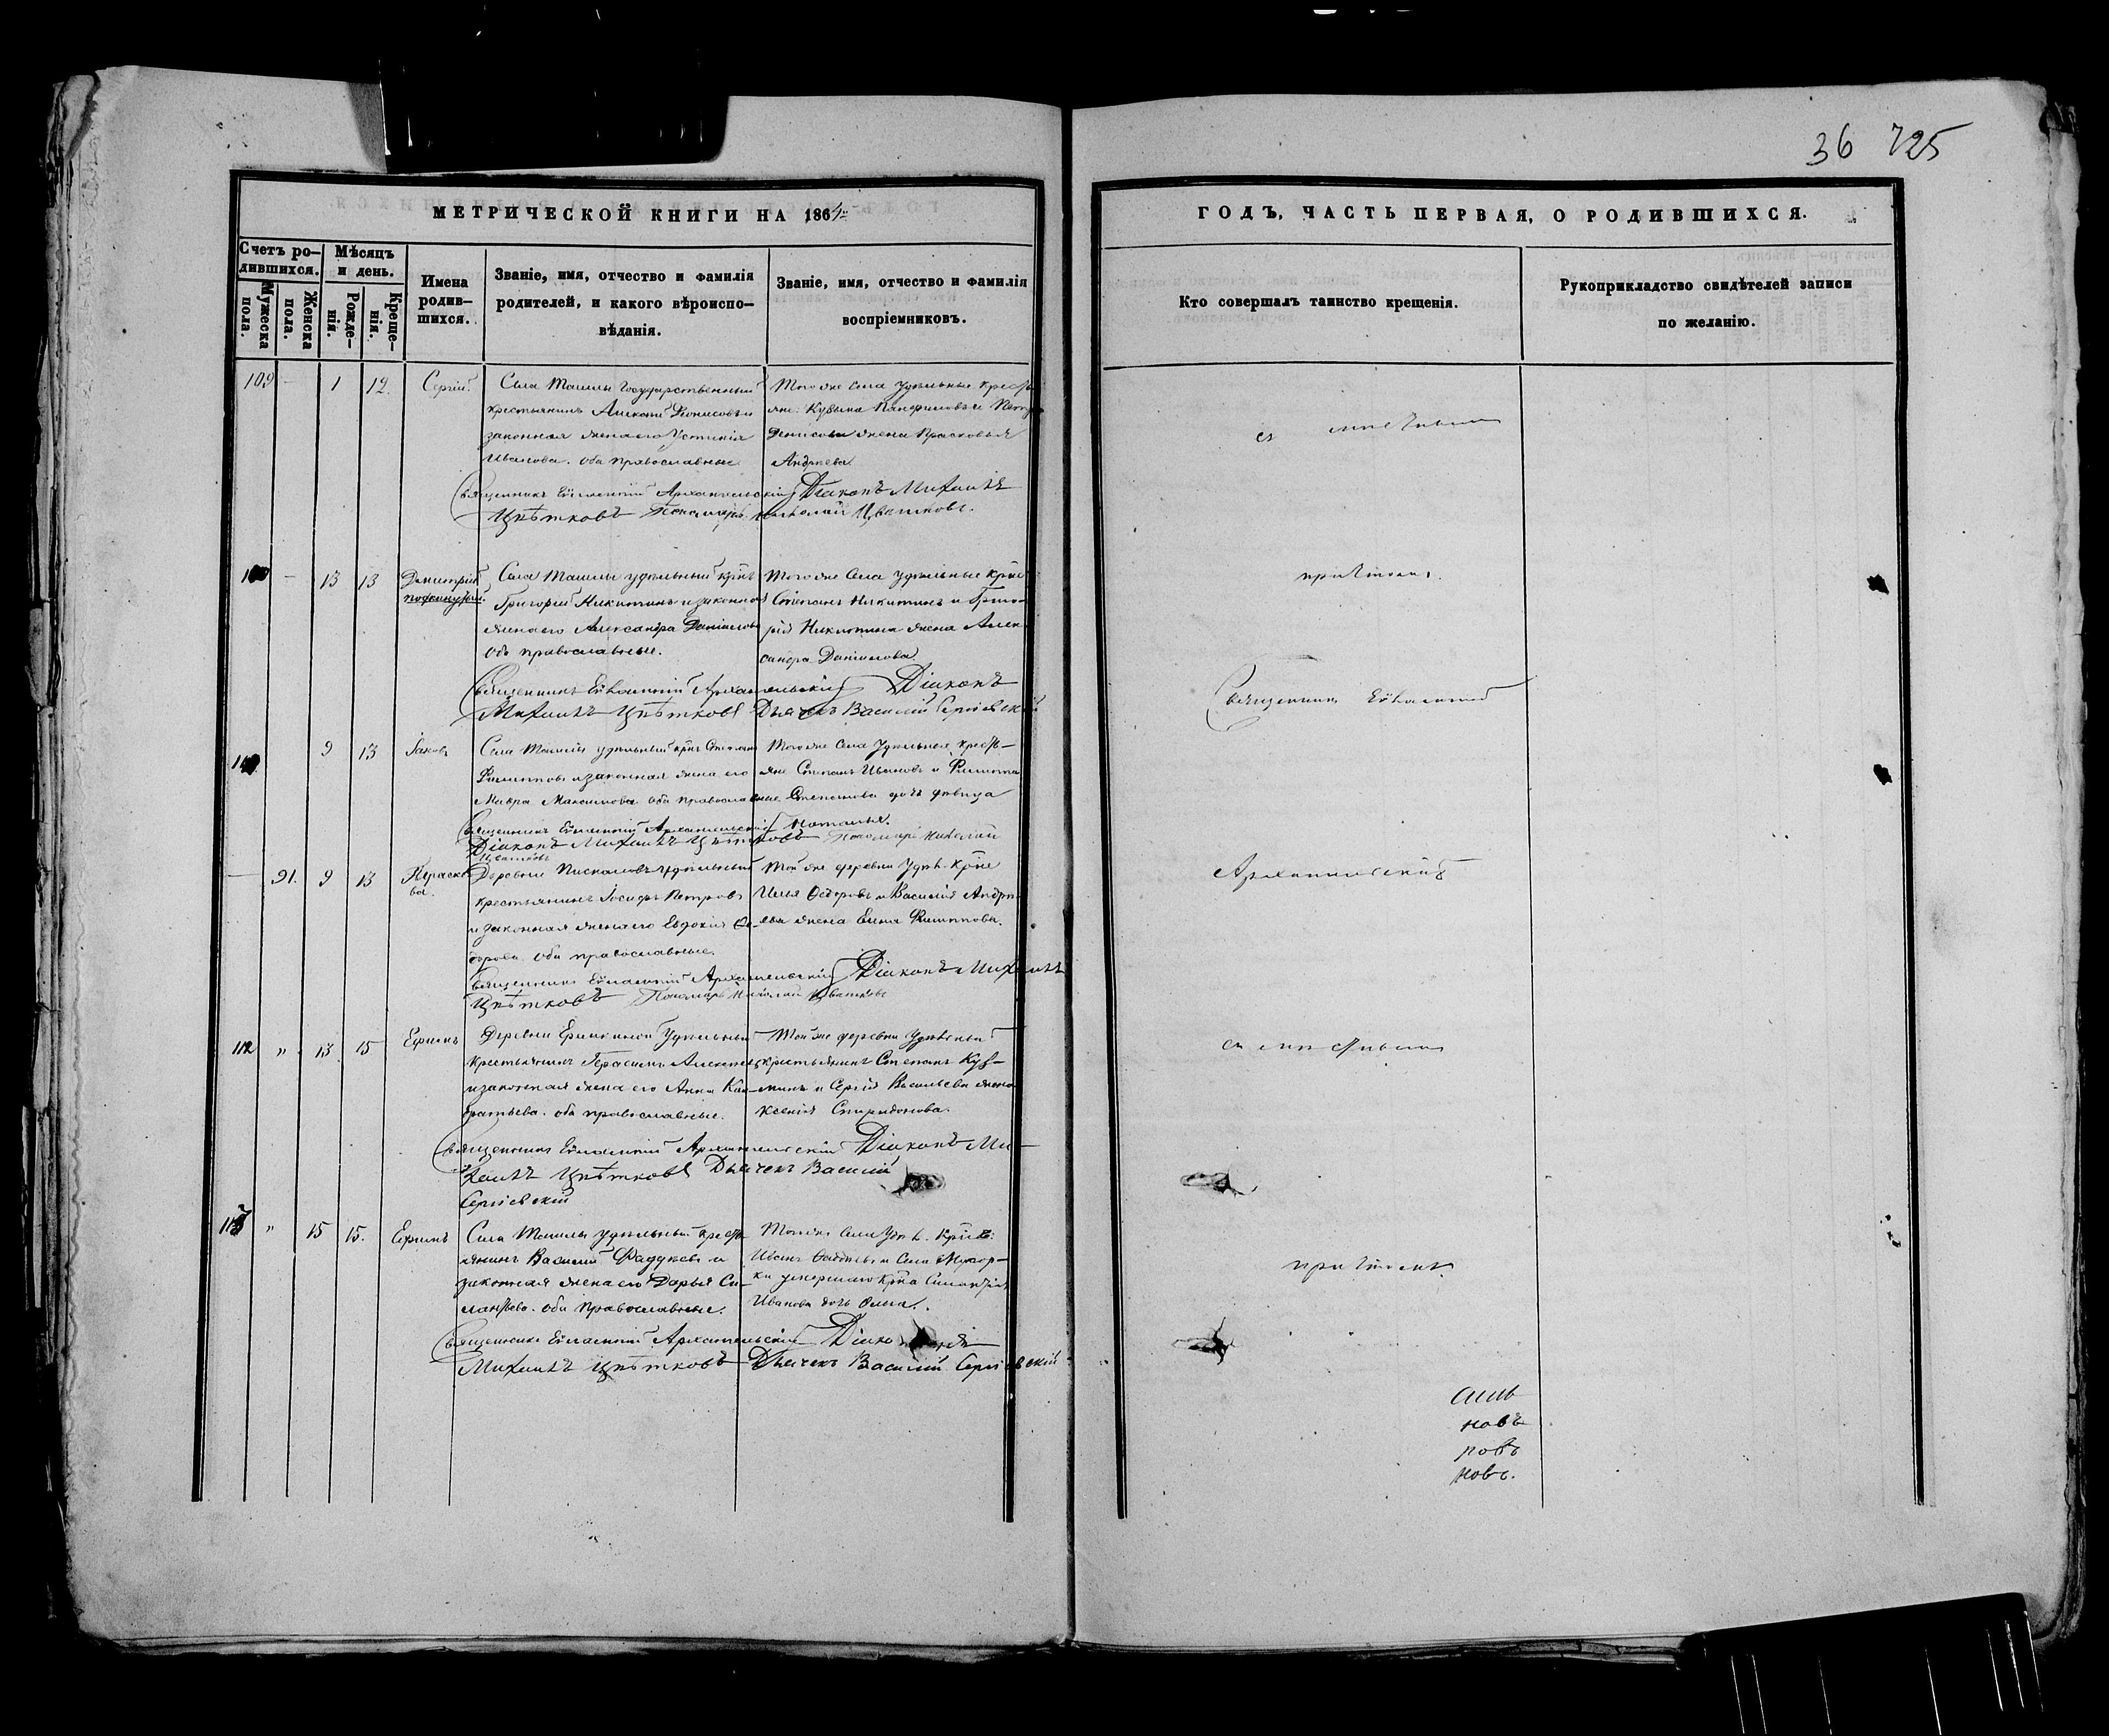 36 725
МЕТРИЧЕСКОЙ КНИГИ НА 1864
ГОДЪ, ЧАСТЬ ПЕРВАЯ, О РОДИВШИХСЯ.
Счетъ ро-
дившихся.
Мужеска
пола.
Женска
пола.
Мѣсяцъ
и день.
Рожде-
нія.
Креще-
нія.
Имена
родив-
шихся.
Званіе, имя, отчество и фамилія
родителей, и какого вѣроиспо-
вѣданія.
Званіе, имя, отчество и фамилія
воспріемниковъ.
Кто совершалъ таинство крещенія.
Рукоприкладство свидѣтелей записи
по желанію.
109 — 1 12 Сергій.
Села Ташлы Государственный
крестьянинъ Алексей Діонисовъ и
законная жена его Устинія
Иванова. оба православные
Того же села удѣльные кресть
яне: Кузьма Панфиловъ и
Денисова жена Прасковья
Андреева
Священникъ Архангельскій Діаконъ Михаилъ
Цвѣтковъ Пономарь Николай Цветковъ.
— 13 13 Димитрій
Села Ташлы удѣльный крнъ
Григорій Никитинъ и законная
жена его Александра Даніилова
Оба православные.
Того же Села удѣльные крне
Степанъ Никитинъ и Григо-
рія Никитина жена Алек
сандра Данилова
Священникъ Архангельскій Діаконъ
Михаилъ Цвѣтковъ Дьячекъ Василій Сергіевскій
9 13 Іаковъ
Села Ташлы удѣльный крнъ Степанъ
Филипповъ и законная жена его
Мавра Максимова оба православные
Того же Села Удѣльные кресть-
яне Степанъ Ивановъ и Филиппа
Степанова дочь девица
Наталья.
Священникъ Архангельскій
Діаконъ Михаилъ Цвѣтковъ Пономарь Николай
Цветковъ
— 91. 9 13 Параске
ва.
Деревни Пискаловъ удѣльный
крестьянинъ Іосифъ Петровъ
и законная жена его Евдокія Ѳе-
дорова оба православные
Той же деревни Удѣл. крне
Илья Ѳедоровъ и Василія Андре
ева жена Елена Филиппова.
Священникъ Архангельскій Діаконъ Михаилъ
Цвѣтковъ Пономарь Николай Цветковъ
112 " 13 15 Ефимъ
Деревни Ерыклинской Удѣльный
крестьянинъ Герасимъ Алексеевъ
и законная жена его Анна Кон-
дратьева. оба православные.
Той же деревни Удѣльный
крестьянинъ Степанъ Кузь-
минъ и Сергія Васильева жена
Ксенія Спиридонова.
Священникъ Архангельскій Діаконъ Ми-
хаилъ Цвѣтковъ Дьячекъ Василій
Сергіевскій
113 " 15 15. Ефимъ
Села Ташлы удѣльный кресть
янинъ Василій Фаддѣевъ и
законная жена его Дарья Си-
лантьева. оба православные.
Того же Села Удѣл. крне:
Иванъ Фаддѣевъ и Села
умершаго крна
Иванова дочь
Священникъ Архангельскій Діаконъ
Михаилъ Цвѣтковъ Дьячекъ Василій Сергіевскій
съ
причтомъ.
Священникъ
Архангельскій
съ
причтомъ
новъ
ровъ
новъ.